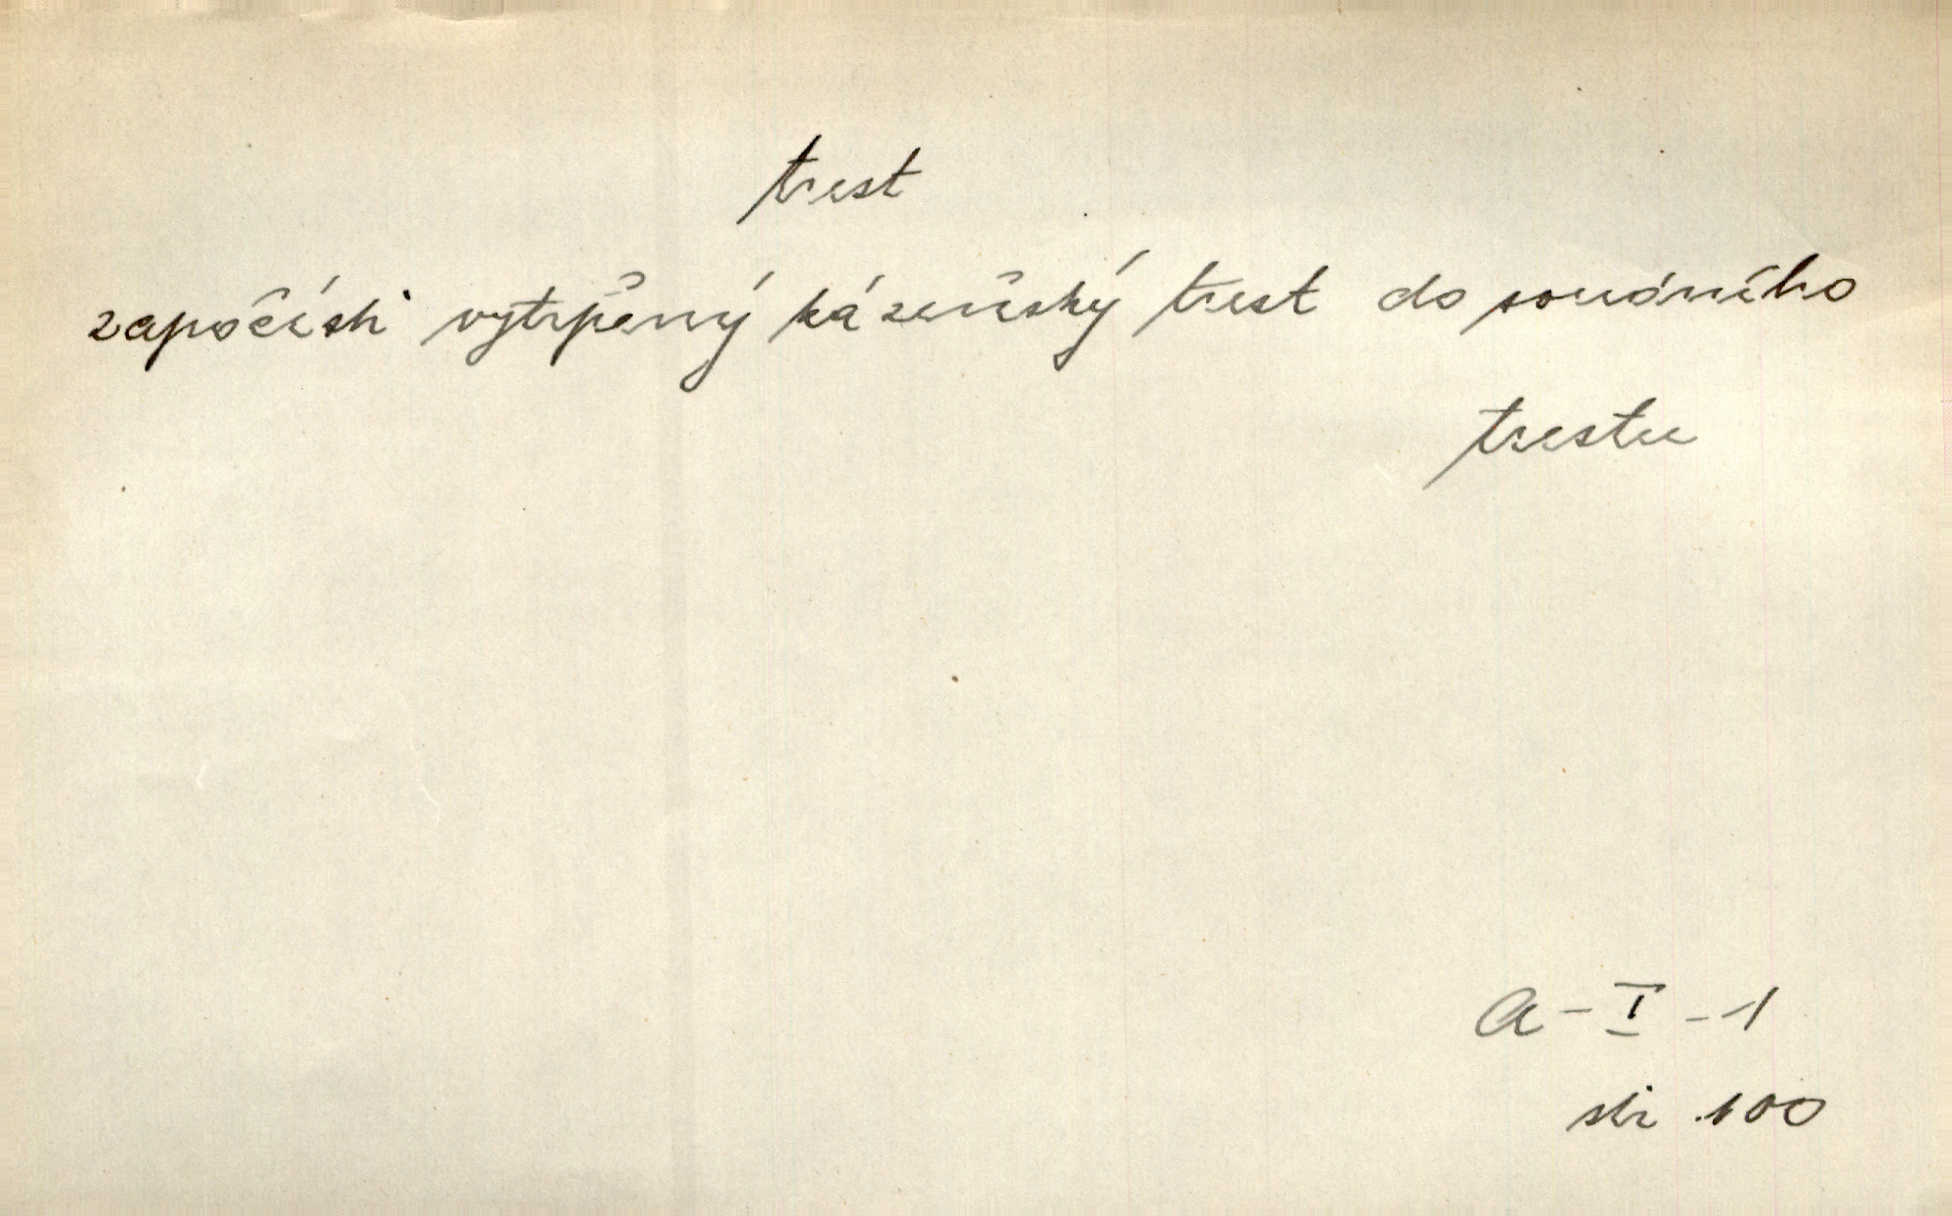 trest
započísti vytrpěný kázeňský trest do soudního
trestu
A-I-1
str. 100